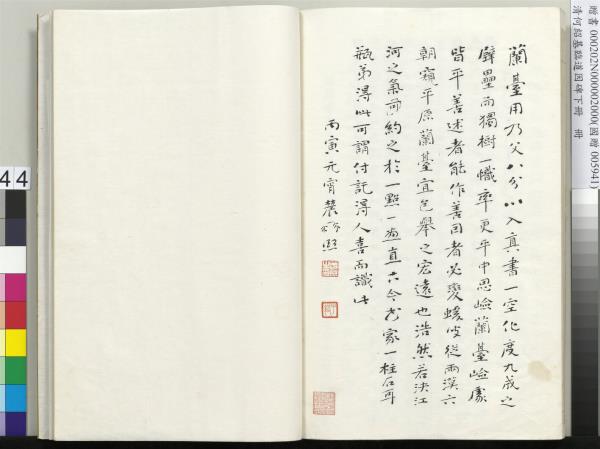 贈書 000202N000002000(國贈 005941)
清何紹基臨道因碑下冊　冊
蘭臺用乃父八分以入真書一空化度九成之
壁壘而獨樹一幟率更平中思險蘭臺險處
皆平善述者能作善因者必變蝯叟從兩漢六
朝窺平原蘭臺宜包舉之宏遠也浩然若決江
河之氣而約之於一點一畫直古今書家一柱石耳
瓶弟得此可謂付託得人喜而識此
丙寅元宵
44